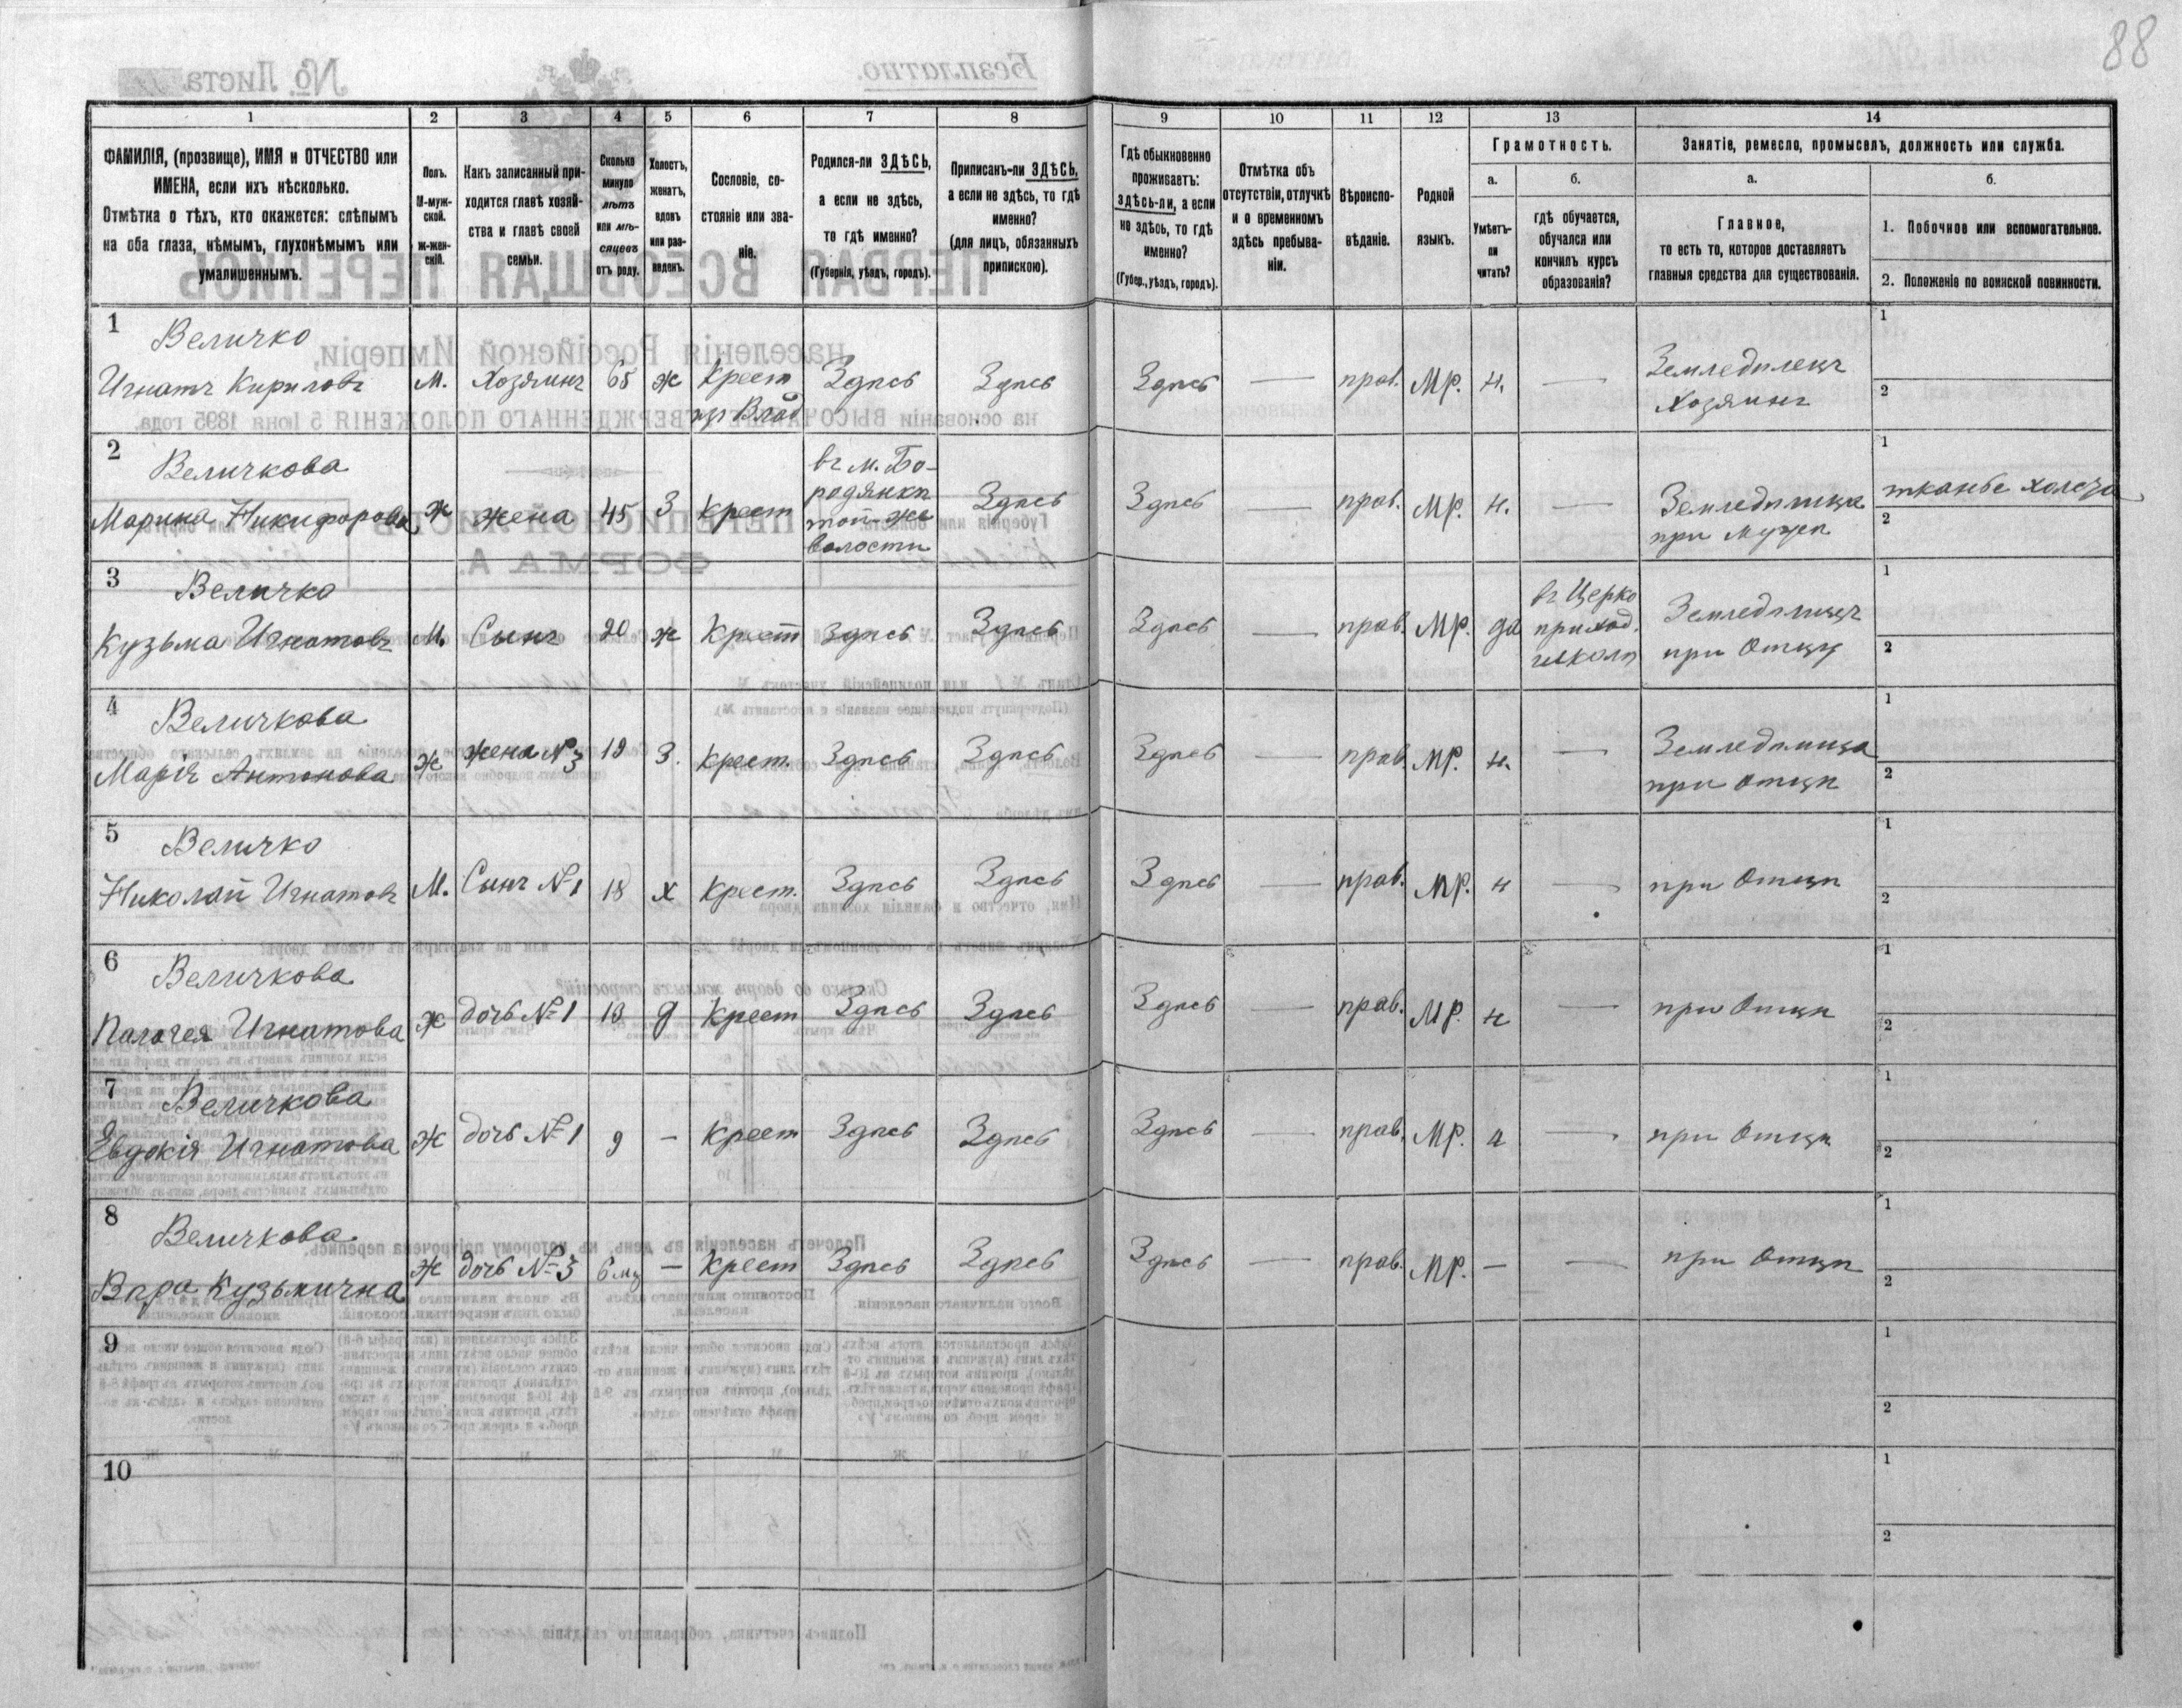 88
1
2
3
4
5
6
7
8
9
10
11
12
13
14
ФАМИЛІЯ, (прозвище), ИМЯ и ОТЧЕСТВО или
ИМЕНА, если ихъ нѣсколько.
Отмѣтка о тѣхъ, кто окажется: слѣпымъ
на оба глаза, нѣмымъ, глухонѣмымъ или
умалишеннымъ.
Полъ.
М-муж-
ской.
ж-жен-
скій.
Какъ записанный при-
ходится главѣ хозяй-
ства и главѣ своей
семьи.
Сколько
минуло
лѣтъ
или мѣ-
сяцевъ
отъ роду.
Холостъ,
женатъ,
вдовъ
или раз-
веденъ.
Сословіе, со-
стояніе или зва-
ніе.
Родился-ли ЗДѢСЬ,
а если не здѣсь,
то гдѣ именно?
(Губернія, уѣздъ, городъ).
Приписанъ-ли ЗДѢСЬ,
а если не здѣсь, то гдѣ
именно?
(для лицъ, обязанныхъ
припискою).
Гдѣ обыкновенно
проживаетъ:
здѣсь-ли, а если
не здѣсь, то гдѣ
именно?
(Губер., уѣздъ, городъ).
Отмѣтка объ
отсутствіи, отлучкѣ
и о временномъ
здѣсь пребыва-
ніи.
Вѣроиспо-
вѣданіе.
Родной
языкъ.
Грамотность.
а.
Умѣетъ-
ли
читать?
б.
гдѣ обучается,
обучался или
кончилъ курсъ
образованія?
Занятіе, ремесло, промыселъ, должность или служба.
а.
Главное,
то есть то, которое доставляетъ
главныя средства для существованія.
б.
1. Побочное или вспомогательное.
2. Положеніе по воинской повинности.
1
Величко
Игнатъ Кириловъ
М.
Хозяинъ
65
ж
Крест
из Влад
Здѣсь
Здѣсь
Здѣсь
—
прав.
МР.
н.
—
Земледѣлецъ
Хозяинъ
1
2
2
Величкова
Марина Никифорова
ж
жена
45
З
Крест
въ м. Бо-
родянкѣ
той-же
волости
Здѣсь
Здѣсь
—
прав.
МР.
н.
—
Земледѣлица
при Мужѣ
1
тканье холста
2
3
Величко
Кузьма Игнатовъ
М.
Сынъ
20
ж
Крест
Здѣсь
Здѣсь
Здѣсь
—
прав.
МР.
да
въ Церко
приход.
школѣ
Земледѣлицъ
при Отцу
1
2
4
Величкова
Марія Антонова
ж
жена №3
19
З.
Крест.
Здѣсь
Здѣсь
Здѣсь
—
прав.
МР.
н.
—
Земледѣлица
при отцѣ
1
2
5
Величко
Николай Игнатовъ
М.
Сынъ №1
18
х
Крест.
Здѣсь
Здѣсь
Здѣсь
—
прав.
МР.
н
—
при Отцѣ
1
2
6
Величкова
Палагея Игнатова
ж
дочь №1
13
д
Крест
Здѣсь
Здѣсь
Здѣсь
—
прав.
МР.
н
—
при Отцѣ
1
2
7
Величкова
Евдокія Игнатова
ж
дочь №1
9
—
Крест
Здѣсь
Здѣсь
Здѣсь
—
прав.
МР.
—
при Отцѣ
1
2
8
Величкова
Вѣра Кузьмична
ж
дочь №3
6 мц
—
Крест
Здѣсь
Здѣсь
Здѣсь
—
прав.
МР.
—
—
при Отцѣ
1
2
9
1
2
10
1
2